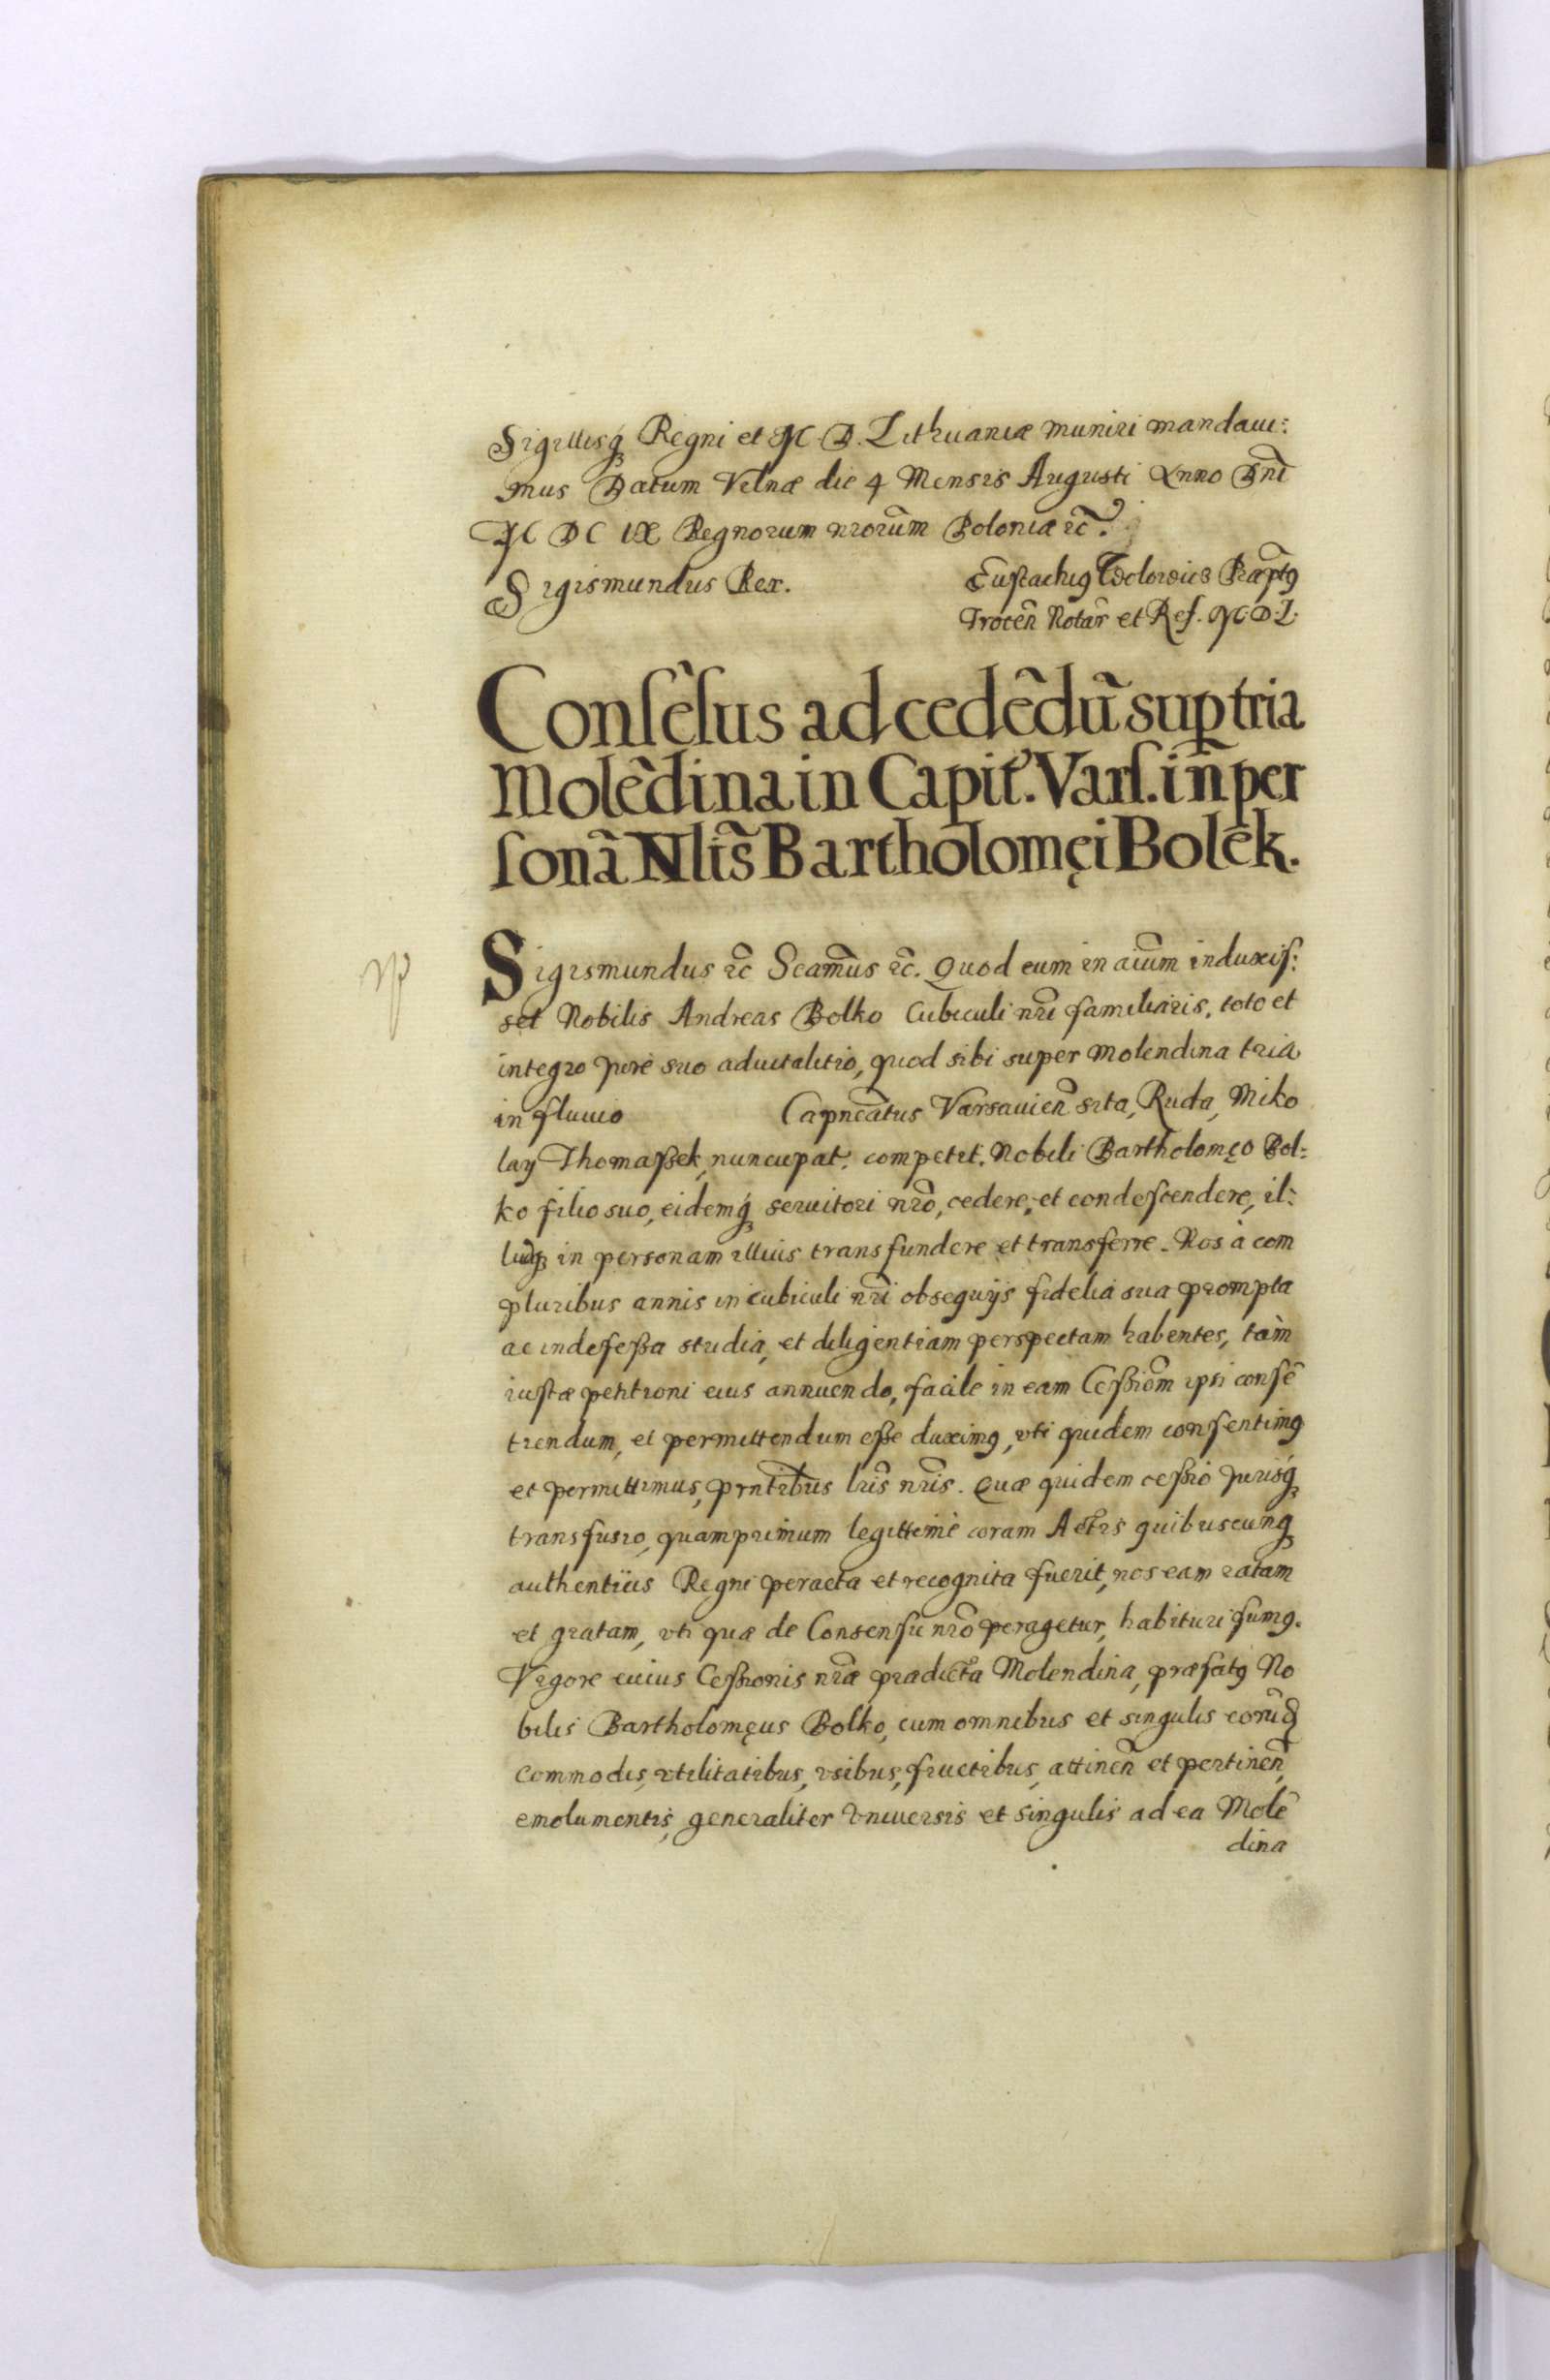 Sigillisq́ꝫ Regni et M. D. Lithuaniæ muniri mandaui:
mus Datum Velnæ die 4 Mensis Augusti Anno Dn̄i
M DC IX Regnorum nrorum̄ Poloniæ ꝛc̄.
Sigismundus Rex. Eustachiꝰ Wolowicz Præp̄tꝰ
Trocen̄ Notar̄ et Ref. M. D. L.
Consēsus ad cedēdū sup tria
Molēdina in Capit. Vars. in per
sonā Nlis̄ Bartholomęi Bolek.
Sigismundus ꝛc̄ Seam̄us ꝛc̄. Quod cum in aium̄ induxis:
set Nobilis Andreas Bolko Cubiculi nr̄i familiaris, toto et
integro jure suo aduitalitio, quod sibi super molendina tria
in fluuio Capnēatus Varsauien̄ sita, Ruda, Miko
lay Thomaßek, nuncupat. competit. Nobili Bartholomęo Bol:
ko filio suo, eidemq́ꝫ seruitori nrō, cedere, et condescendere, il:
ludqꝫ in personam illius transfundere et transferre. Nos à com
pluribus annis in cubiculi nr̄i obsequijs fidelia sua prompta
ac indefeßa studia, et diligentiam perspectam habentes, tàm
iustæ petitioni eius annuendo, facile in eam Ceßiom̄ ipsi consē
tiendum, et permittendum eße duximꝰ, vti quidem consentimꝰ
et permittimus, prntibūs lris̄ nris̄. Quæ quidem ceßio jurisq́ꝫ
transfusio, quamprimum legittimè coram Actis quibuscunqꝫ
authenticis Regni peracta et recognita fuerit, nos eam ratam
et gratam, vti quæ de Consensu nrō peragetur, habituri sumꝰ.
Vigore cuius Ceßionis nrǣ prædicta Molendina, præfatꝰ No
bilis Bartholomęus Bolko, cum omnibus et singulis eorūd
commodis, vtilitatibus, vsibus, fructibus, attinen̄ et pertinen̄,
emolumentis, generaliter vniuersis et singulis ad ea Molē
dina